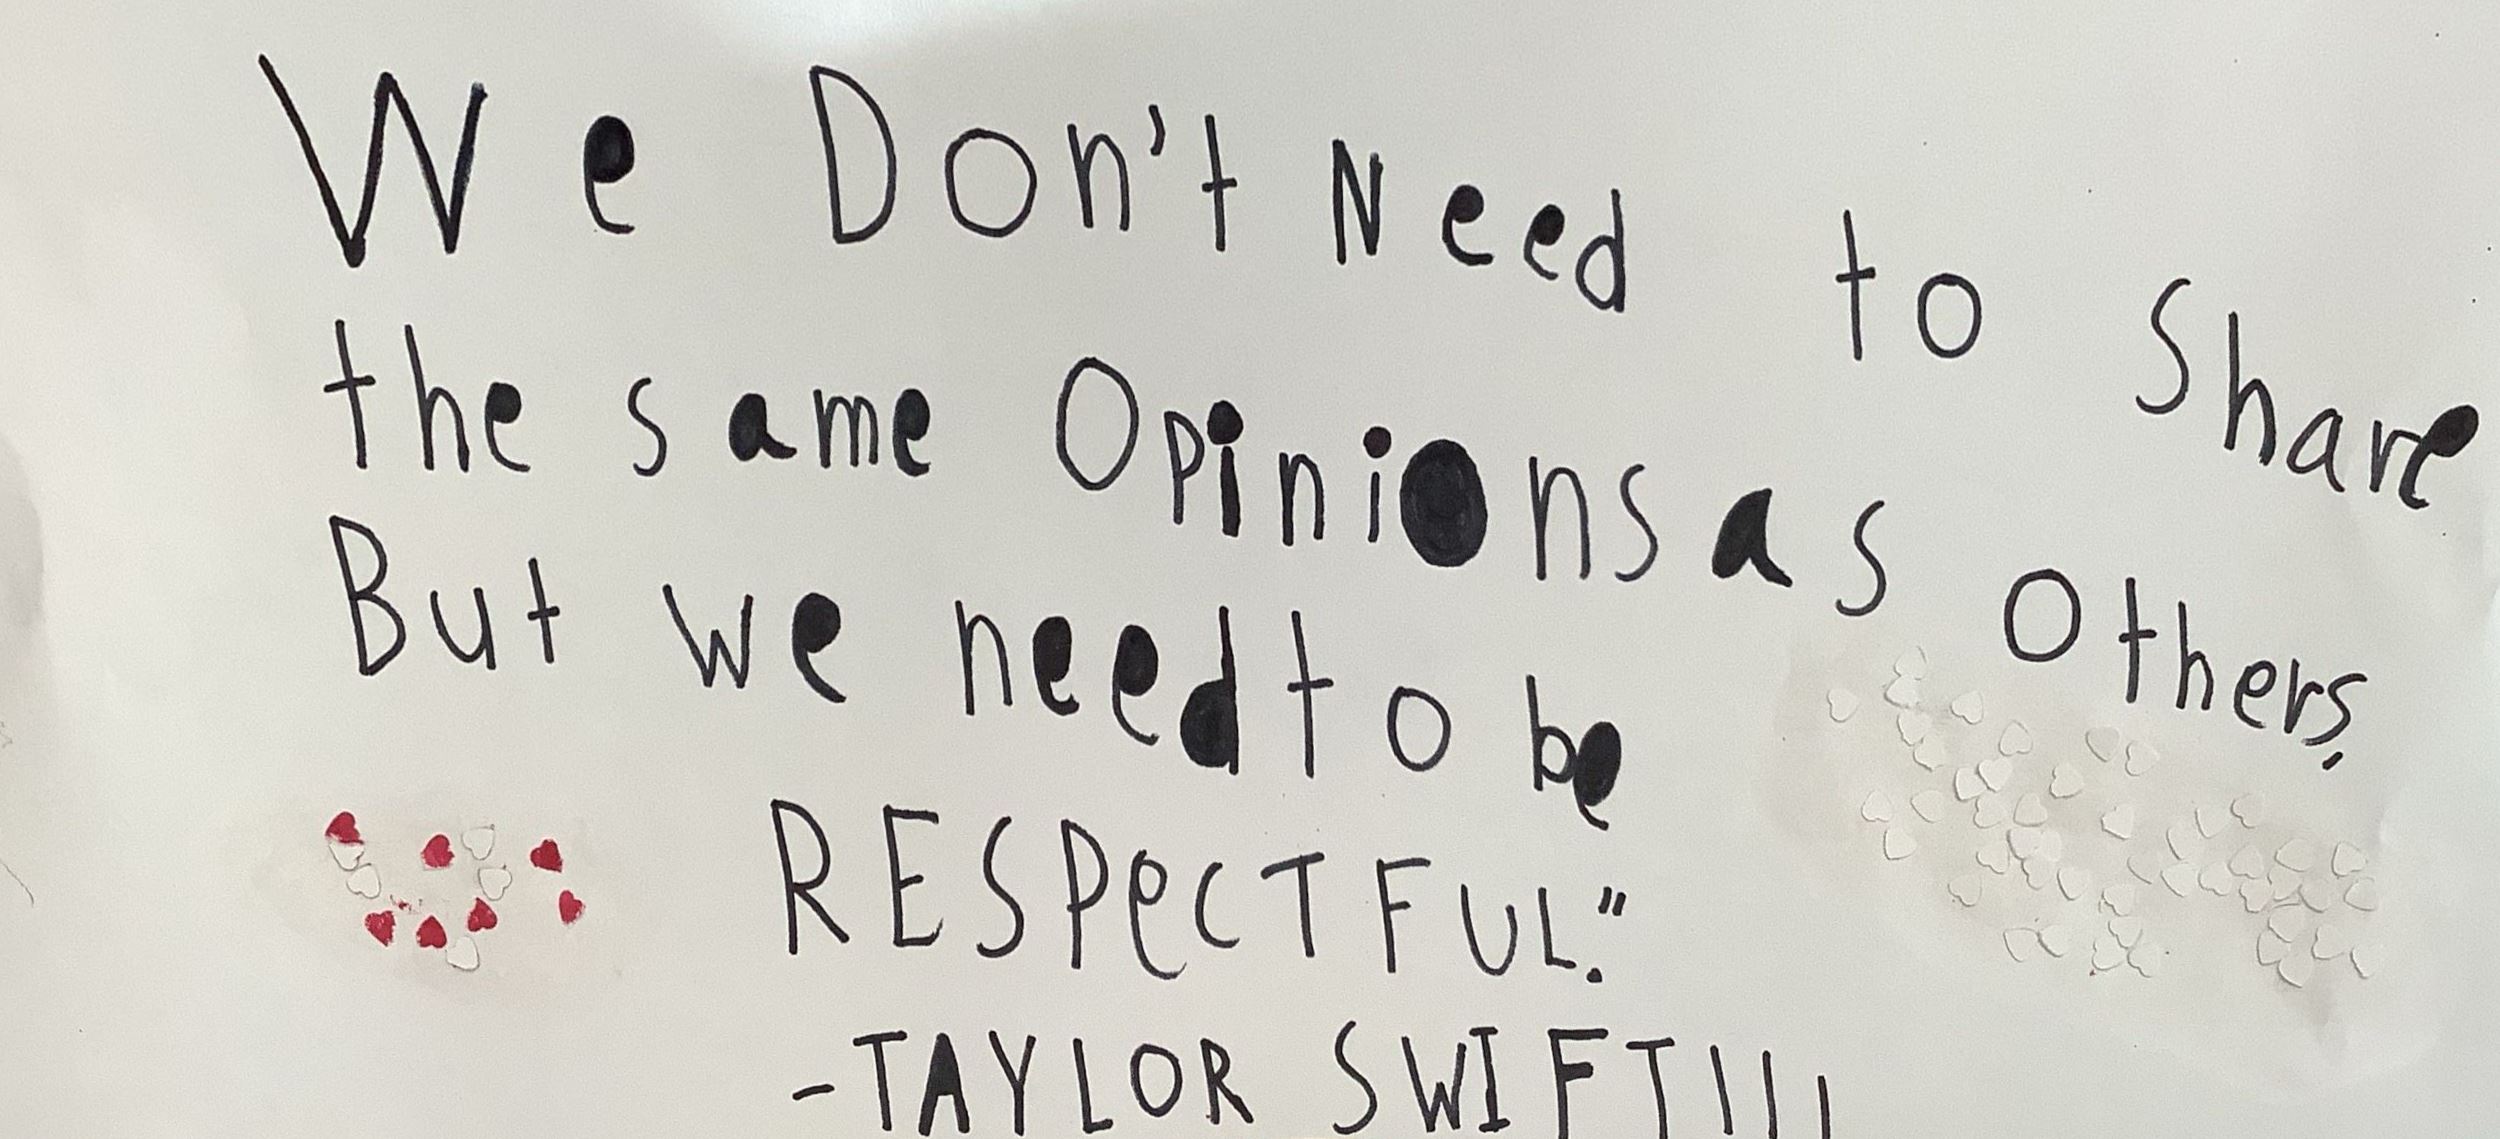 We Don't Need to Share
the same Opinions as Others.
But we need to be
RESPeCTFUL."
-TAYLOR SWIFT!!!